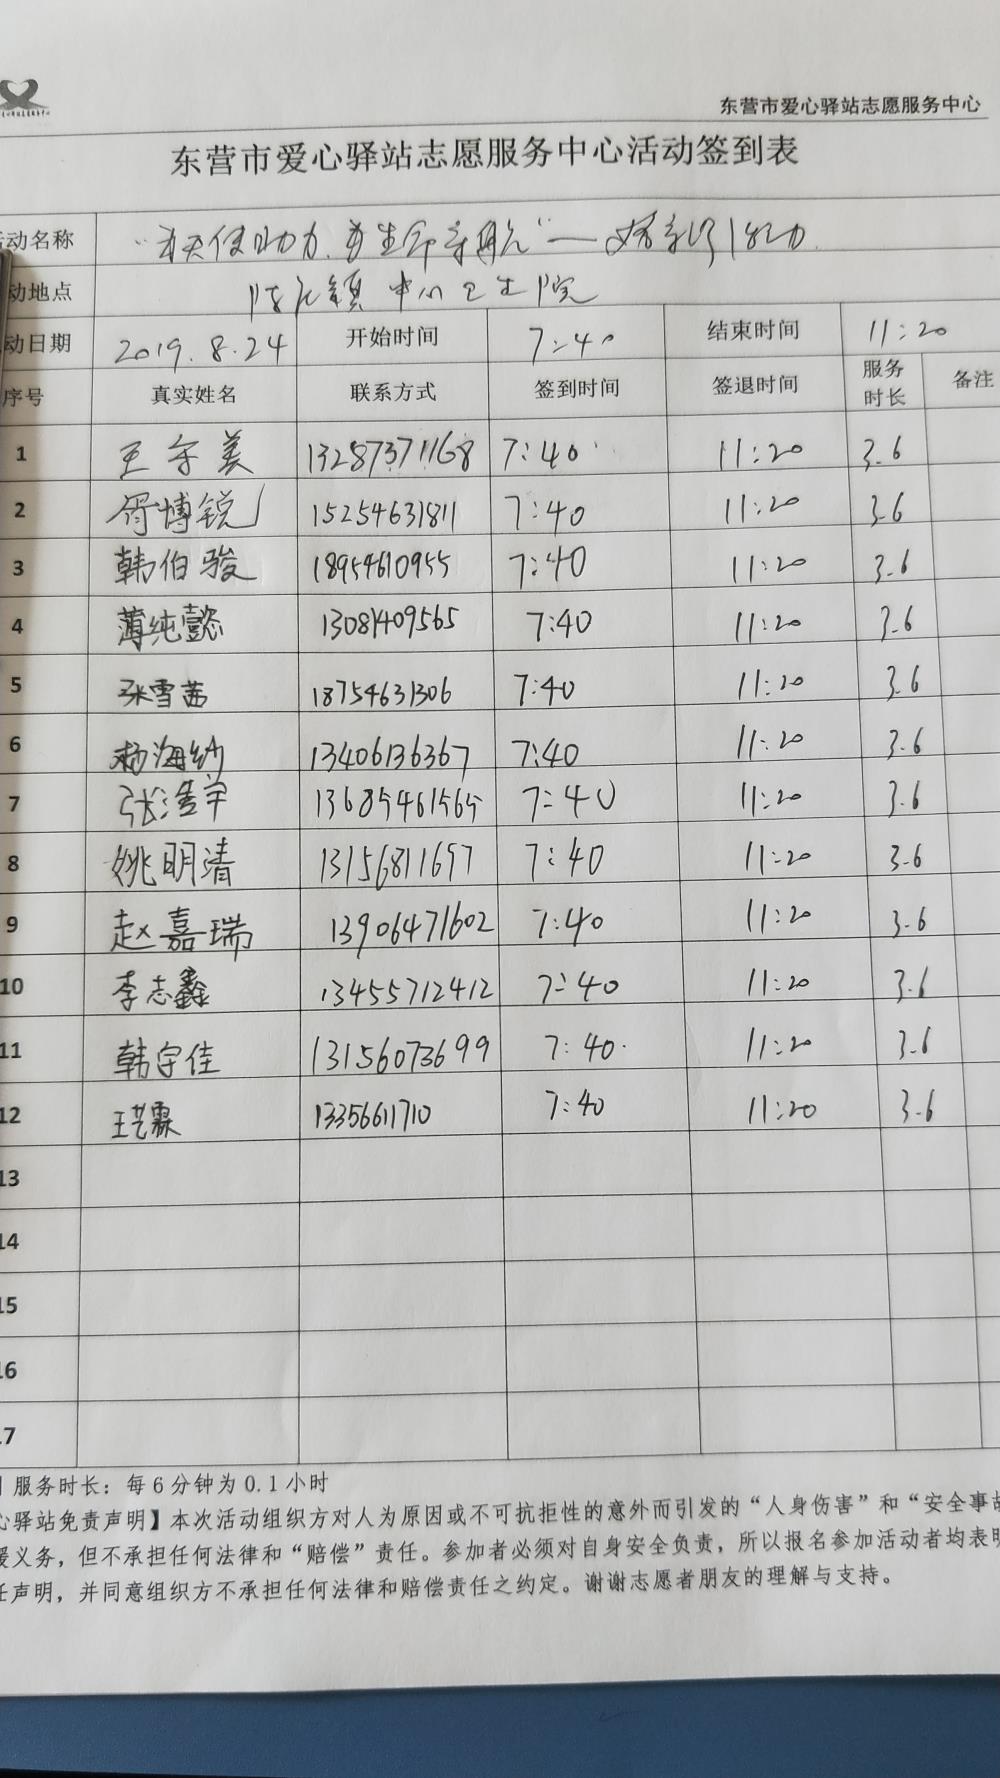 东营市爱心驿站志愿服务中心
东营市爱心驿站志愿服务中心活动签到表
动名称 "为天使助力.为生命导航"
动地点 中心卫生院
动日期 2019.8.24 开始时间 7:40 结束时间 11:20
序号 真实姓名 联系方式 签到时间 签退时间 服务时长 备注
1 王守美 13287371168 7:40 11:20 3.6
2 胥博锐 15254631811 7:40 11:20 3.6
3 韩伯骏 18954610955 7:40 11:20 3.6
4 薄纯懿 13081409565 7:40 11:20 3.6
5 张雪茜 18754631306 7:40 11:20 3.6
6 杨海纱 13406136367 7:40 11:20 3.6
7 张浩宇 13685461565 7:40 11:20 3.6
8 姚明清 13156811697 7:40 11:20 3.6
9 赵嘉瑞 13906471602 7:40 11:20 3.6
10 李志鑫 13455712412 7:40 11:20 3.6
11 韩宇佳 13156073699 7:40 11:20 3.6
12 王艺霖 13356611710 7:40 11:20 3.6
13
14
15
16
17
服务时长：每6分钟为0.1小时
心驿站免责声明】本次活动组织方对人为原因或不可抗拒性的意外而引发的“人身伤害”和“安全事故
援义务，但不承担任何法律和“赔偿”责任。参加者必须对自身安全负责，所以报名参加活动者均表明
任声明，并同意组织方不承担任何法律和赔偿责任之约定。谢谢志愿者朋友的理解与支持。